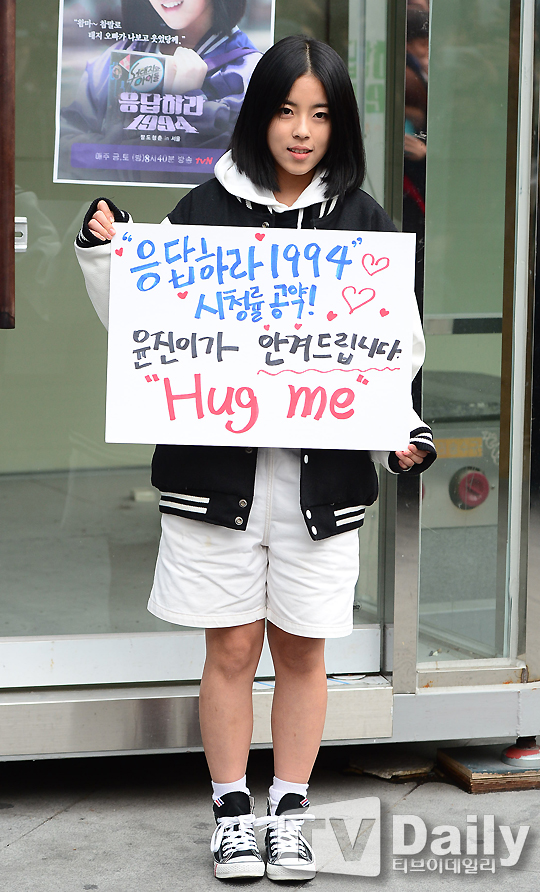 "왐마~ 참말로
태지 오빠가 나보고 웃었당께."
응답하라
1994
매주 금,토 (밤)8시40분 방송 tvN
"응답하라 1994"
시청률 공약!
윤진이가 안겨드립니다
"Hug me"
TV Daily
티브이데일리